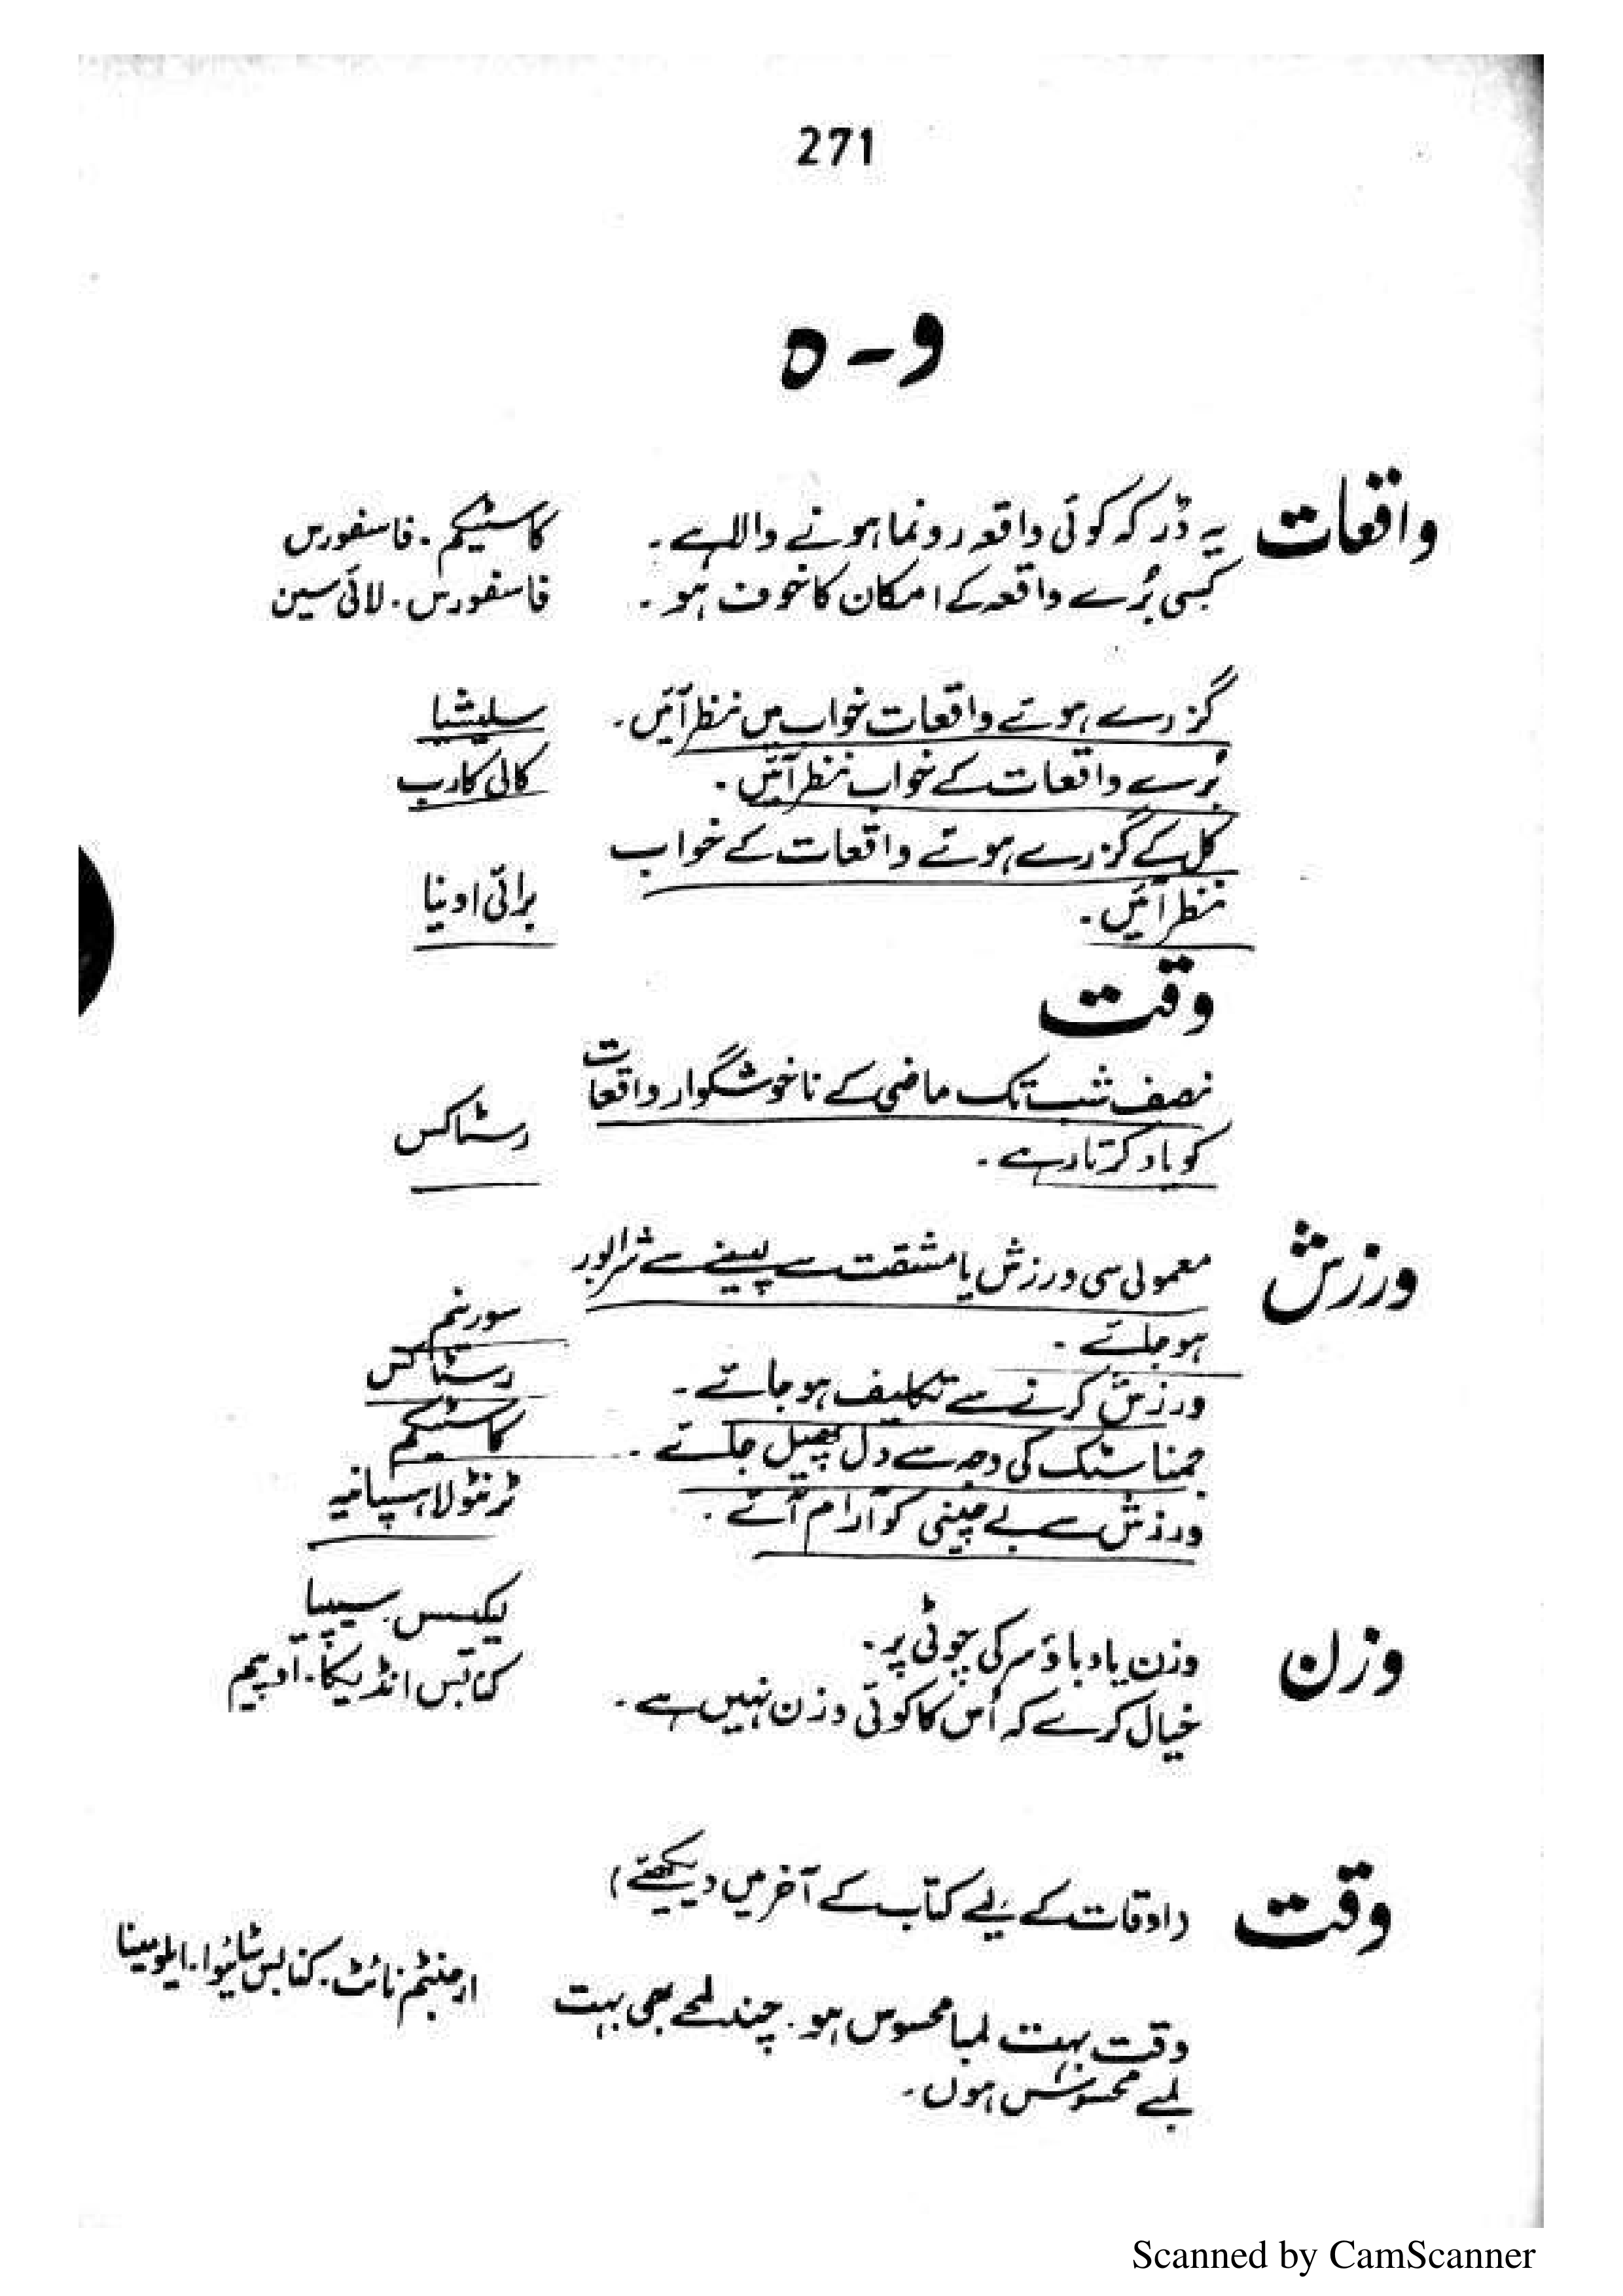 271
و - ہ
واقعات یہ ڈر کہ کوئی واقعہ رونما ہونے والا ہے۔ کاسٹیکم۔ فاسفورس
کسی بُرے واقعہ کے امکان کا خوف ہو۔ فاسفورس۔ لائی سین
گزرے ہوئے واقعات خواب میں نظر آئیں۔ سلیشیا
بُرے واقعات کے خواب نظر آئیں۔ کالی کارب
کل کے گزرے ہوئے واقعات کے خواب
نظر آئیں۔ برائی اونیا
وقت
نصف شب تک ماضی کے ناخوشگوار واقعات
کو یاد کرتا رہے۔ رسٹاکس
ورزش معمولی سی ورزش یا مشقت سے پسینے سے شرابور
ہو جائے۔ سورینم
ورزش کرنے سے تکلیف ہو جائے۔ رسٹاکس
جمناسٹک کی وجہ سے دل پھیل جائے۔ کاسٹیکم
ورزش سے بے چینی کو آرام آئے۔ ٹرنٹولا ہسپانیہ
وزن وزن یا دباؤ سر کی چوٹی پر۔ لیکیسس۔ سیپیا
خیال کرے کہ اُس کا کوئی وزن نہیں ہے۔ کنابس انڈیکا۔ اوپیم
وقت (اوقات کے لیے کتاب کے آخر میں دیکھئے)
وقت بہت لمبا محسوس ہو۔ چند لمحے بھی بہت ارجنٹم نائٹ۔ کنابس سٹائیوا۔ ایلومینا
لمبے محسوس ہوں۔
Scanned by CamScanner